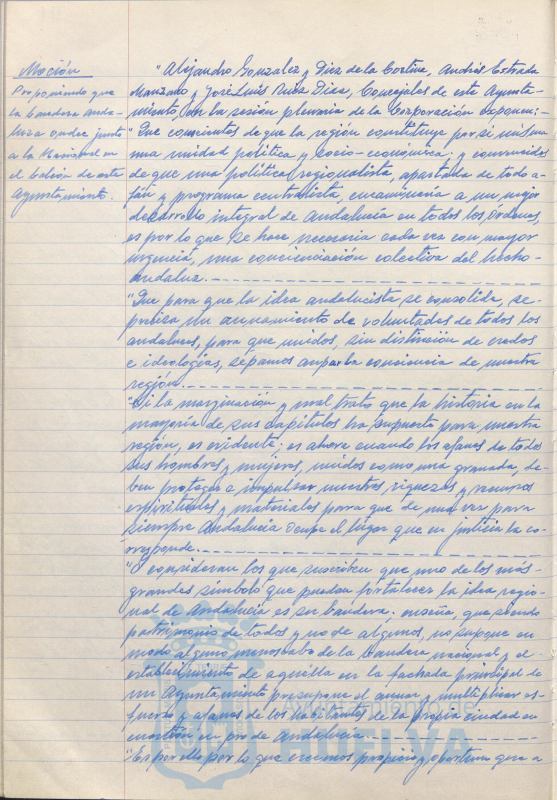 Moción
Proponiendo que
la bandera anda-
luza ondee junto
a la Nacional en
el balcón de este
Ayuntamiento.
"Alejandro Gonzalez y Diez de la Cortina, Andrés Estrada
Manzano y José Luis Ruiz Diaz, Concejales de este Ayunta-
miento, en la sesión plenaria de la Corporación exponen:-
"Que conscientes de que la región constituye por si misma
una unidad política y socio-económica; y convencidos
de que una política regionalista, apartada de todo a-
fán y programa centralista, encaminaría a un mejor
desarrollo integral de Andalucía en todos los órdenes,
es por lo que se hace necesaria cada vez con mayor
urgencia, una concienciación colectiva del hecho-
andaluz.
"Que para que la idea andalucista se consolida, se-
precisa un aunamiento de voluntades de todos los
andaluces, para que unidos, sin distinción de credos
e ideologías, sepamos aupar la conciencia de nuestra
región.
"Si la marginación y mal trato que la historia en la
mayoría de sus capítulos ha supuesto para nuestra
región, es evidente; es ahora cuando los afanes de todos
sus hombres y mujeres, unidos como una granada, de-
ben proteger e impulsar nuestras riquezas y recursos
espirituales y materiales para que de una vez para
siempre Andalucía ocupe el lugar que en justicia la co-
rresponde.
"Y consideran los que suscriben que uno de los más-
grandes símbolo que puedan fortalecer la idea regio-
nal de Andalucía es su bandera; enseña, que siendo
patrimonio de todos y no de algunos, no supone en
modo alguno menoscabo de la bandera nacional y el-
establecimiento de aquélla en la fachada principal de
un Ayuntamiento presupone el aunar y multiplicar es-
fuerzos y afanes de los habitantes de la propia ciudad en
cuestión en pro de Andalucía.
"Es por ello por lo que creemos propicio y oportuno que a
Ayuntamiento de
HUELVA